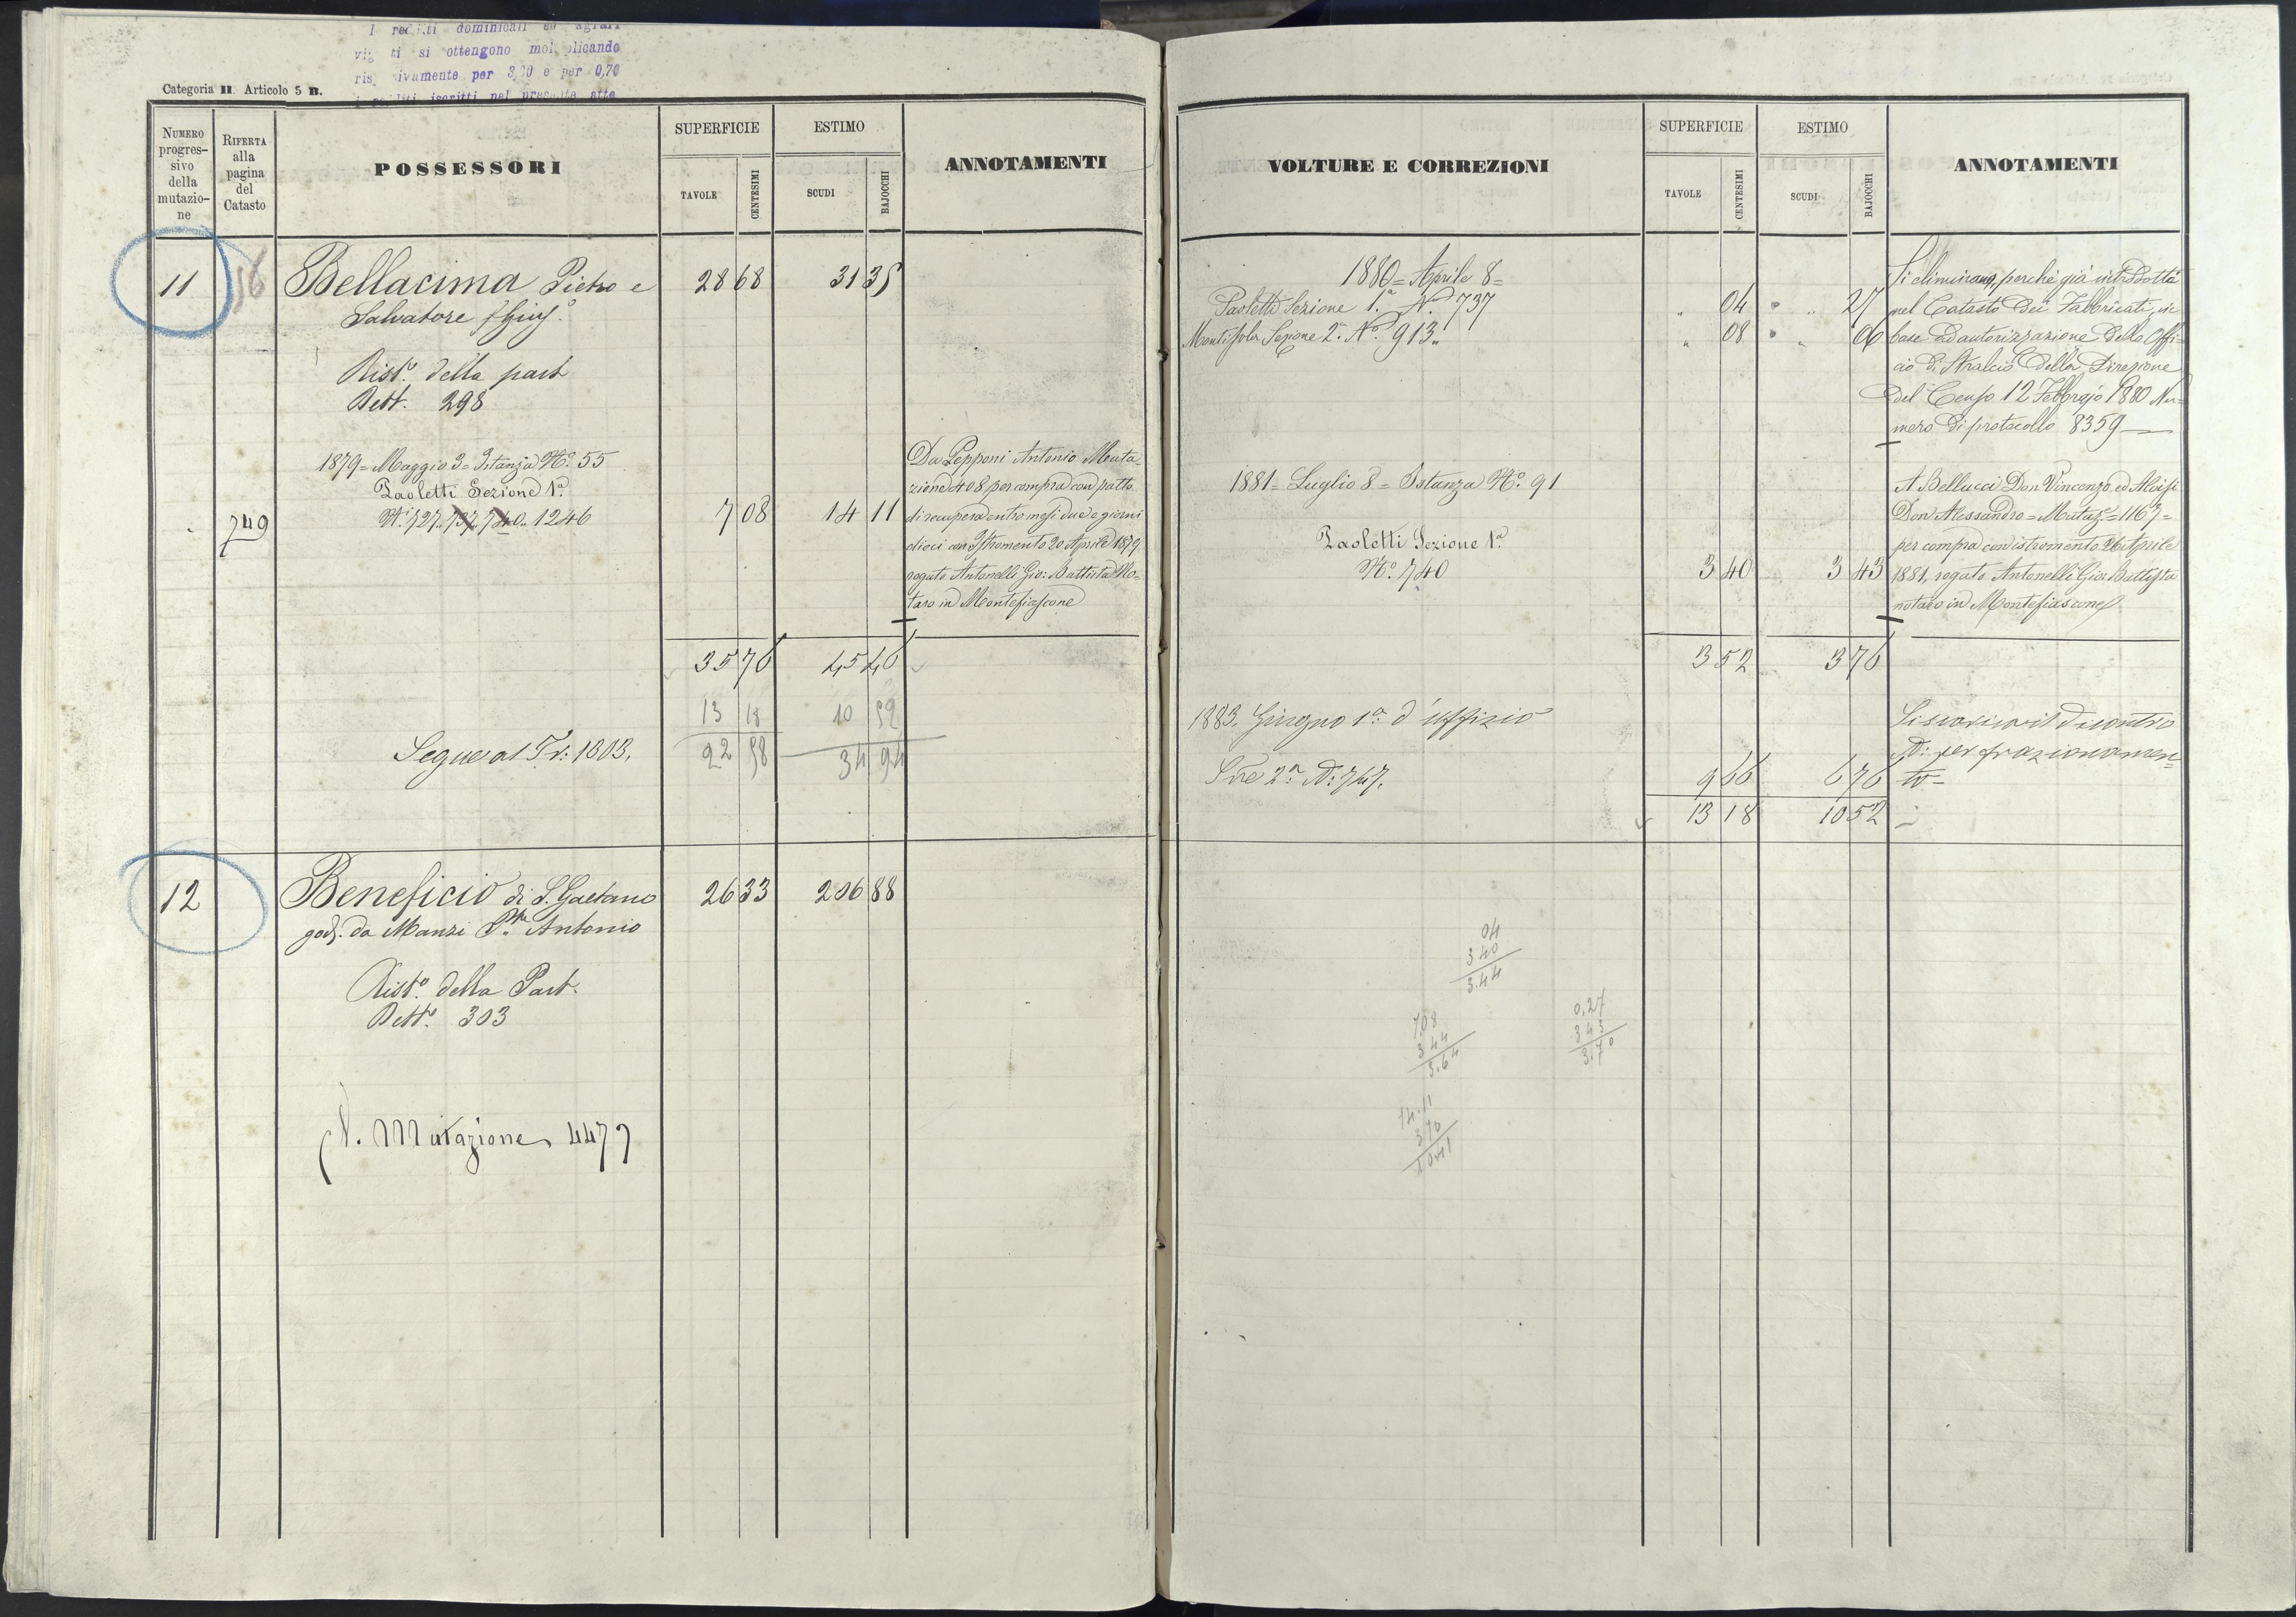 I redditi dominicali ed agrari
si ottengono
per 3,00 e per 0,70
iscritti nel presente atto
Categoria II. Articolo 5 B.
NUMERO progres-
sivo
della
mutazio-
ne
RIFERTA
alla
pagina
del
Catasto
POSSESSORI
SUPERFICIE
TAVOLE
CENTESIMI
ESTIMO
SCUDI
BAJOCCHI
ANNOTAMENTI
11
56
Bellacima Pietro e
28 68
31 35
Salvatore f Gius.
Rist.o della part
Dett. 298
1879 = Maggio 3 = Istanza N.o 55
Paoletti Sezione 1.a
749
N.i 727. 737. 740. 1246
7 08
14 11
Da Pepponi Antonio Muta-
zione 408 per compra con patto
di recupera entro mesi due e giorni
dieci con Istromento 20 Aprile 1879
rogato Antonelli Gio: Battista No-
taro in Montefiascone
35 76
45 46
13 18
10 52
Segue al Tr: 1803.
22 58
34 94
12
Beneficio di S. Gaetano
26 33
206 88
god. da Manzi Antonio
Rist.o della Part.
Dett.o 303
V. Mutazione 4477
VOLTURE E CORREZIONI
SUPERFICIE
TAVOLE
CENTESIMI
ESTIMO
SCUDI
BAJOCCHI
ANNOTAMENTI
1880 = Aprile 8 =
Paoletti Sezione 1.a N. 737
" 04
" 27
Montisola Sezione 2.a N.o 913.
" 08
" 06
Si eliminano, perchè già introdotta
nel Catasto dei Fabbricati, in
base ad autorizzazione dello Offi-
cio di Stralcio della Direzione
del Censo 12 Febbrajo 1880 Nu-
mero di protocollo 8359
1881 = Luglio 8 = Istanza N.o 91
Paoletti Sezione 1.a
N.o 740
3 40
3 43
A Bellucci Don Vincenzo ed Aloisi
Don Alessandro = Mutaz.e = 1167 =
per compra con istromento 26 Aprile
1881, rogato Antonelli Gio: Battista
notaro in Montefiascone
3 52
3 76
1883. Giugno 1.o d'uffizio
Sne 2.a N: 747.
9 66
6 76
Si scarica il dicontro
N: per frazionamen-
to =
13 18
10 52
04
3 40
3.44
7.08
3 44
3.64
0,27
3 43
3.70
14.11
3 70
10.41